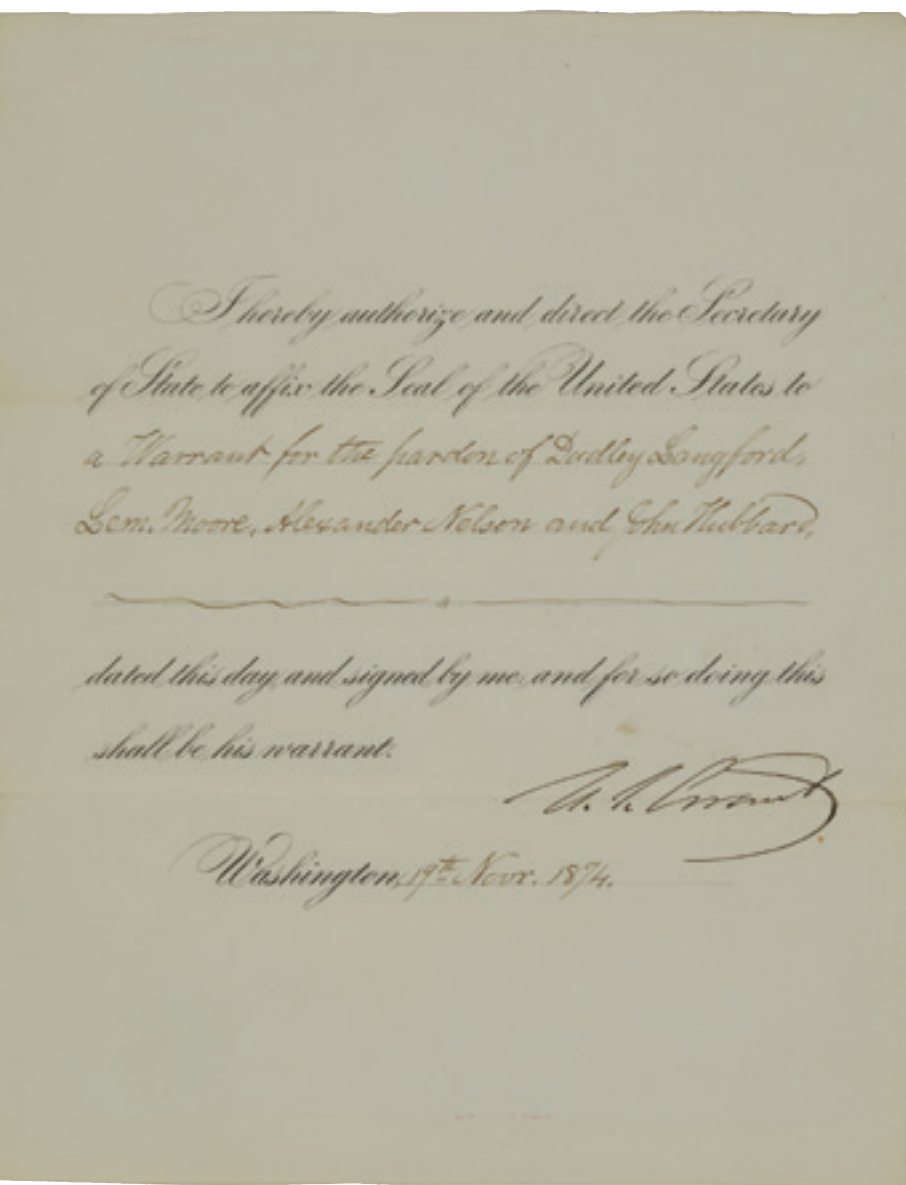 I hereby authorize and direct the Secretary
of State to affix the Seal of the United States to
a Warrant for the pardon of Dudley Langford,
Lem. Moore, Alexander Nelson and John Hubbard,
dated this day, and signed by me, and for so doing this
shall be his warrant.
U. S. Grant
Washington, 19th Novr. 1874.